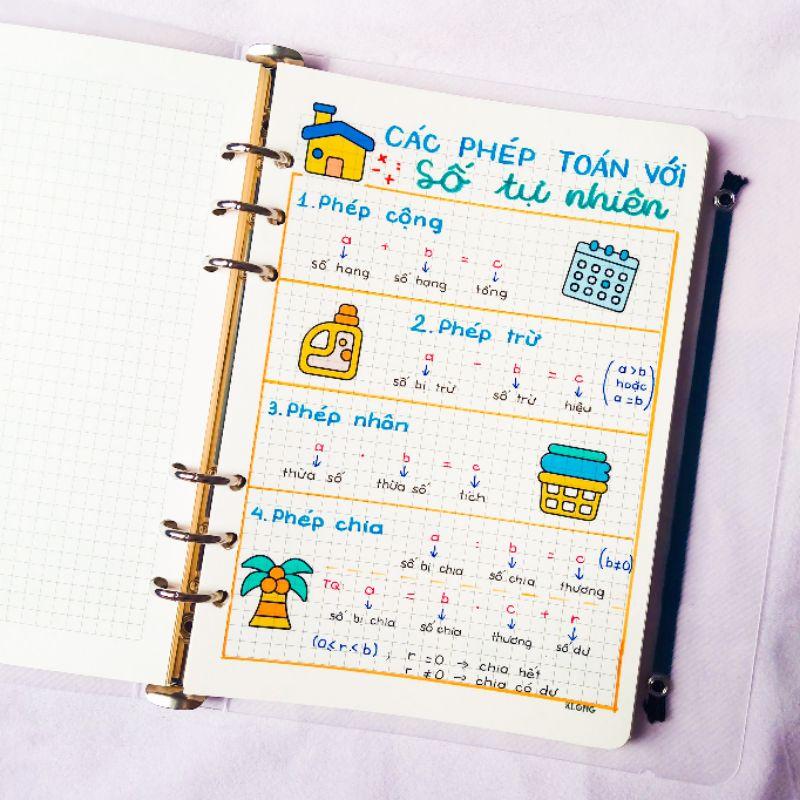 CÁC PHÉP TOÁN VỚI
x : - +
Số tự nhiên
1. Phép cộng
a + b = c
số hạng số hạng tổng
2. Phép trừ
a - b = c
số bị trừ số trừ hiệu
(a > b
hoặc
a = b)
3. Phép nhân
a . b = c
thừa số thừa số tích
4. Phép chia
a : b = c (b ≠ 0)
số bị chia số chia thương
TQ: a = b . c + r
số bị chia số chia thương số dư
(0 ≤ r < b) ; r = 0 → chia hết
r ≠ 0 → chia có dư
XLONG